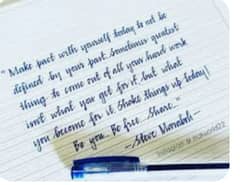 "Make pact with yourself today to not be
defined by your past. Sometimes greatest
thing to come out of all your hard work
isnt what you get for it, but what
you become for it. Shake things up today!
Be you... Be free... Share..."
- Steve Maraboli -